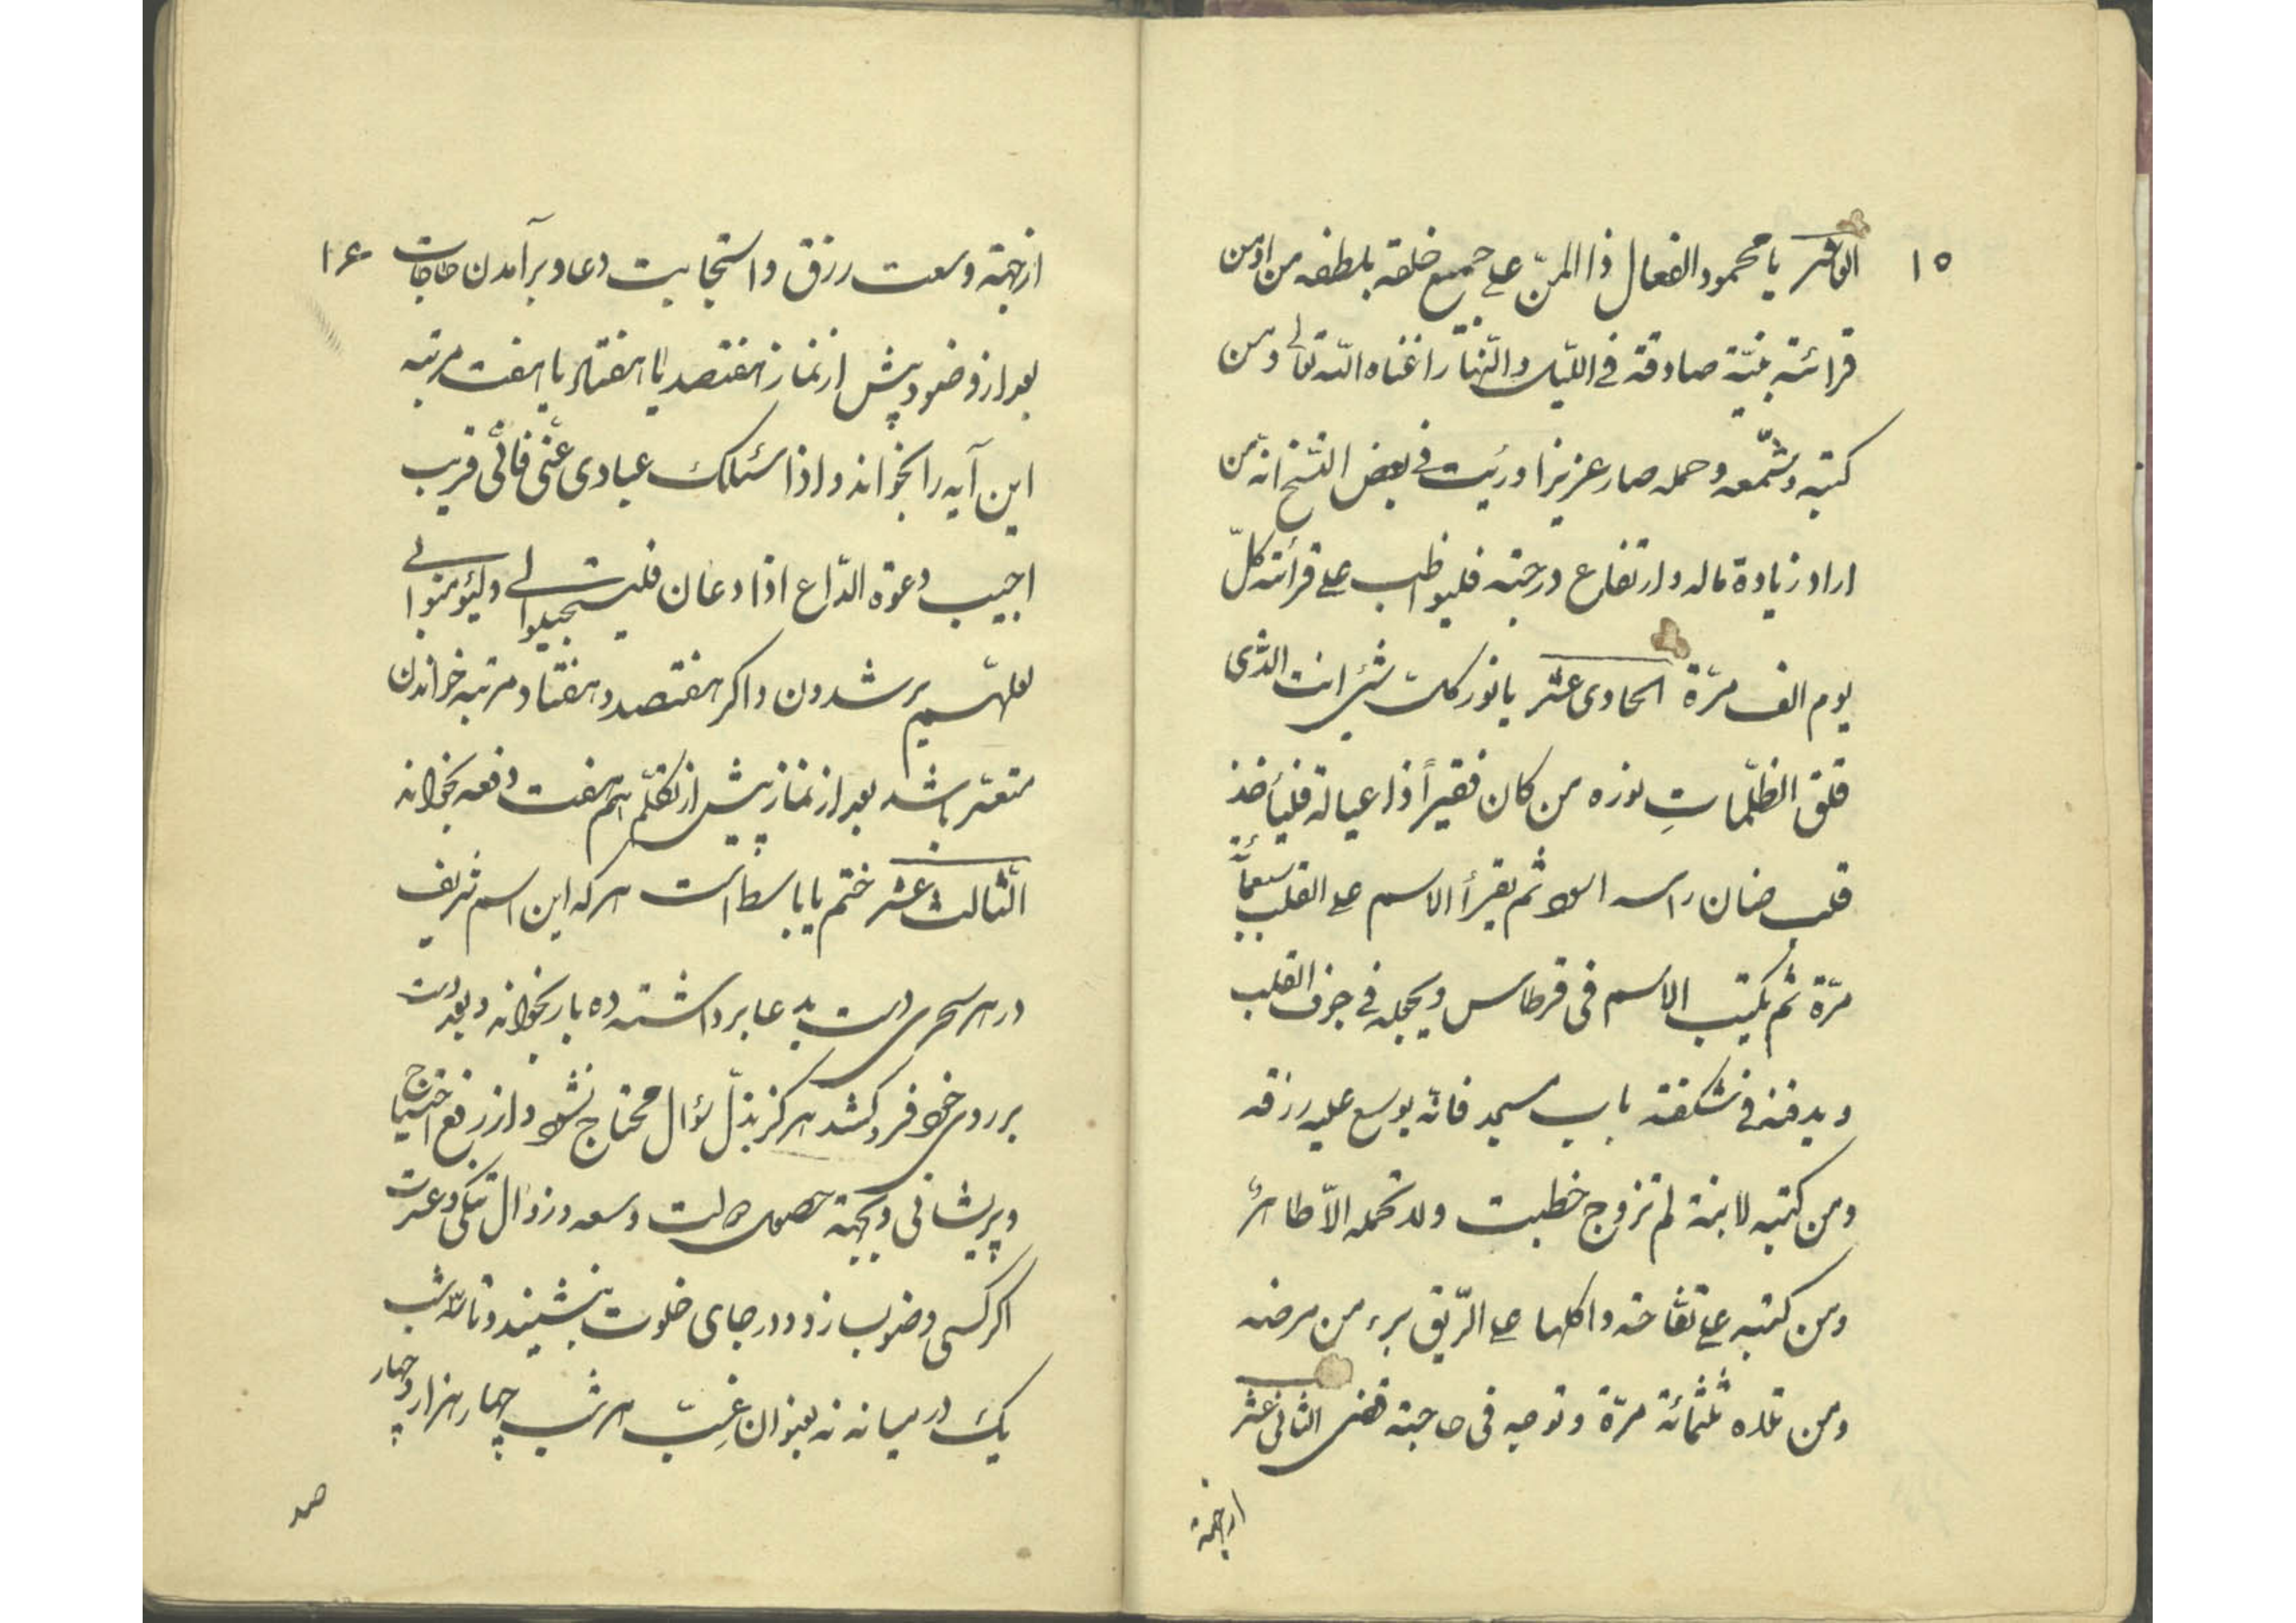 ١٥
العاشر يا محمود الفعال ذا المنّ على جميع خلقه بلطفه من ادمن
قرائته بنيّة صادقة فى اللّيل والنّهار اغناه اللّه تعالى ومن
كتبه وشمّعه وحمله صار عزيزا ورئيت فى بعض النّسخ انه من
اراد زيادة ماله وارتفاع درجته فليواظب على قرائته كلّ
يوم الف مرّة الحادى عشر يا نور كل شئ انت الذى
فلق الظلمات نوره من كان فقيراً ذا عيالة فليأخذ
قلب ضان راسه اسود ثم يقرأ الاسم على القلب سبعمأئة
مرّة ثم يكتب الاسم فى قرطاس ويجعله فى جوف القلب
ويدفنه فى شكفته باب مسجد فانّه يوسع عليه رزقه
ومن كتبه لابنة لم تزوج خطبت ولا تحمله الّا طاهرٌ
ومن كتبه على تفّاحة واكلها على الرّيق برء من مرضه
ومن تلاه ثلثمائة مرّة وتوجه فى حاجته قضى الثانى عشر
ازجهة
١۶
ازجهة وسعت رزق واستجابت دعا وبرآمدن حاجات
بعد از وضو وپيش از نماز هفتصد يا هفتاد يا هفت مرتبه
اين آيه را بخواند واذا سئلك عبادى عنّى فانّى قريب
اجيب دعوة الدّاع اذا دعان فليستجيبوا لى وليؤمنوا بى
لعلّهم يرشدون واكر هفتصد وهفتاد مرتبه خواندن
متعسّر باشد بعد از نماز پيش از تكلّم هم هفت دفعه بخواند
الثّالث عشر ختم يا باسط است هركه اين اسم شريف
در هر سحرى دست بدعا برداشته ده بار بخواند وبعد دست
بر روى خود فرو كشد هركز بذلّ سؤال محتاج نشود واز رفع احتياج
وپريشانى وبجهة حصول دولت وسعه وزوال تنكى وعسرت
اكر كسى وضو بسازد ودر جاى خلوت بنشيند وتا سه شب
يك در ميانه نه بعنوان غبّ هر شب چهار هزار وچهار
صد